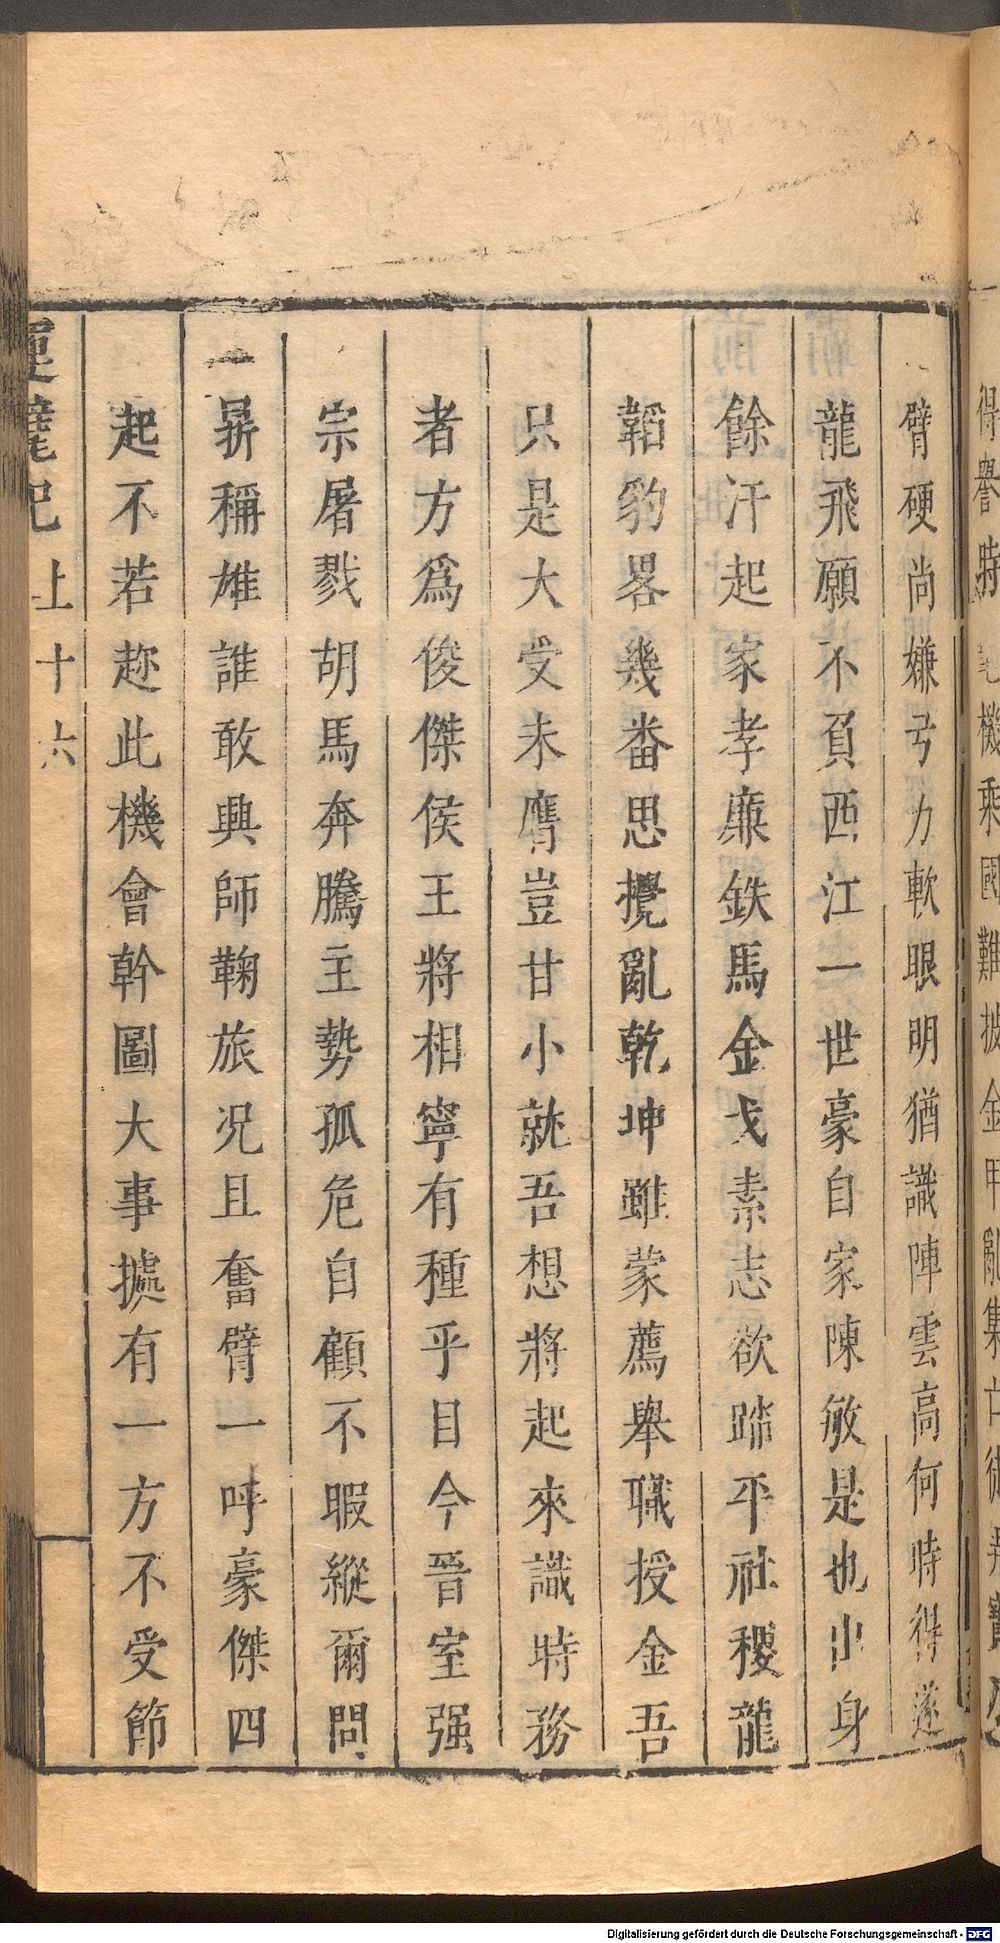 得譽時乖機乘國難披金甲亂集亡
臂硬尚嫌弓力軟眼明猶識陣雲高何時得遂
龍飛願不負西江一世豪自家陳敏是也出身
餘汗起家孝廉鉄馬金戈素志欲踏平社稷龍
韜豹畧幾番思攪亂乾坤雖蒙薦舉職授金吾
只是大受未膺豈甘小就吾想將起來識時務
者方爲俊傑侯王將相寧有種乎目今晉室强
宗屠戮胡馬奔騰主勢孤危自顧不暇縱爾問
一羿稱雄誰敢興師鞠旅况且奮臂一呼豪傑四
起不若趂此機會幹圖大事據有一方不受節
運甓記
上
十六
Digitalisierung gefördert durch die Deutsche Forschungsgemeinschaft - DFG